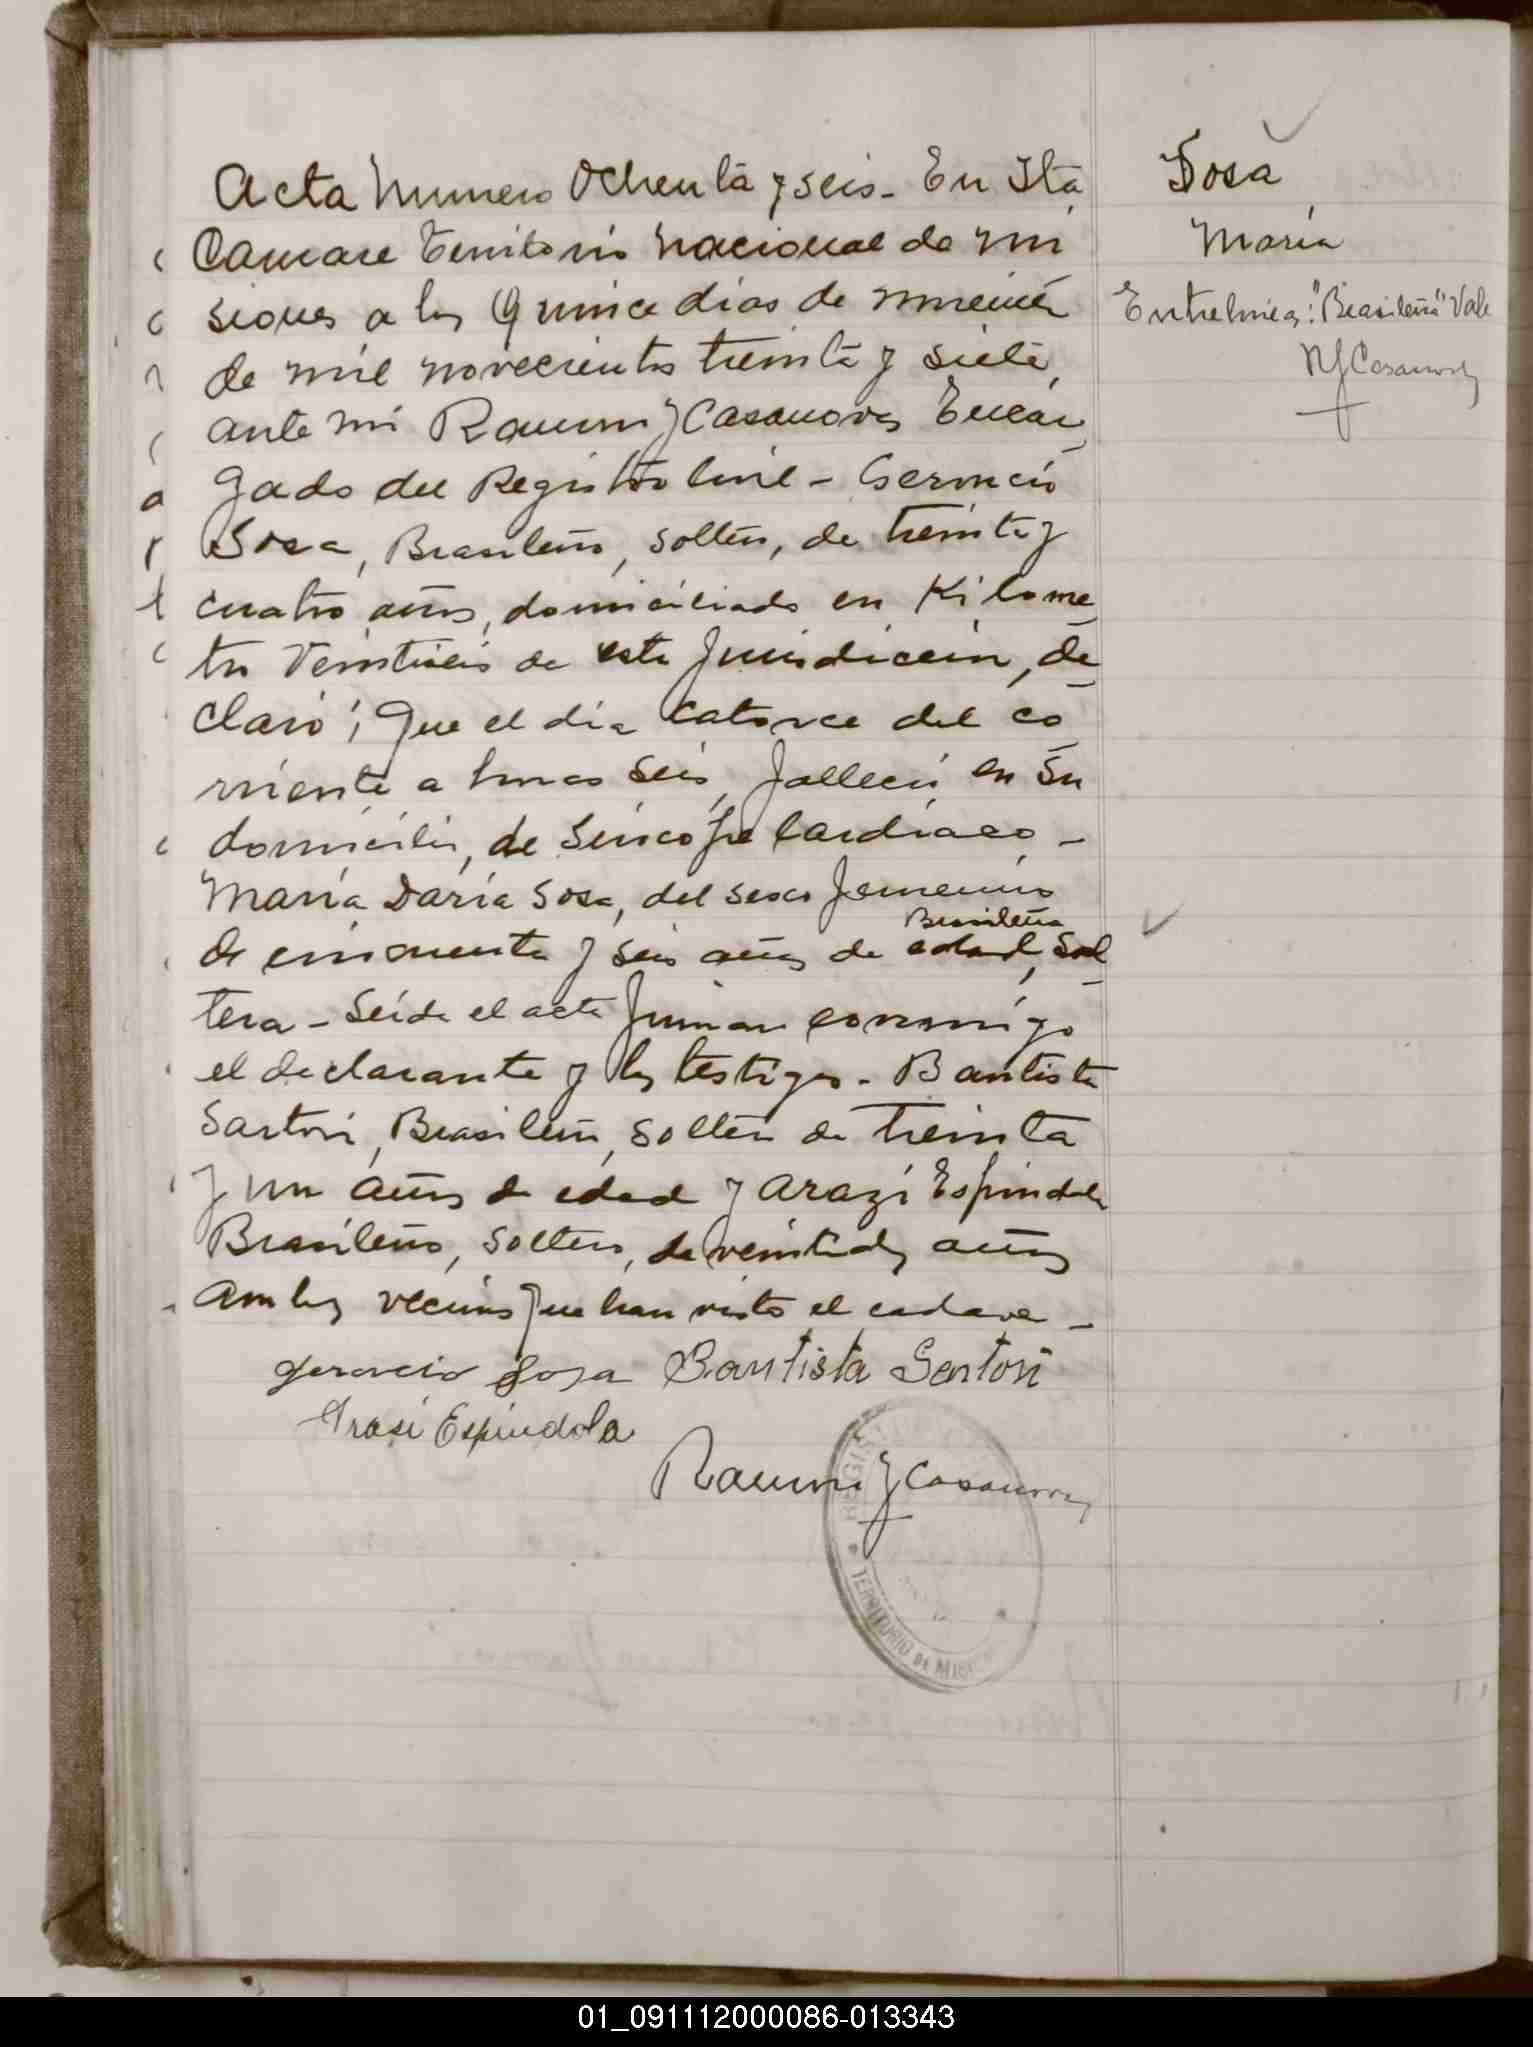 Acta Numero Ochenta y seis - En Ita
Camare Territorio nacional de Mi
siones a los Quince dias de
de mil novecientos treinta y siete,
ante mi Ramon J Casanovas Encar
gado del Registro Civil - Geroncio
Sosa, Brasileño, soltero, de treinta y
cuatro años, domiciliado en Kilome
tro Veintiseis de esta Jurisdiccion, de
claró; Que el dia catorce del co
rriente a horas seis, falleció en su
domicilio, de Sincope Cardiaco -
Maria Daria Sosa, del sexo femenino
Brasileña
de cincuenta y seis años de edad, Sol
tera - Leida el acta firman conmigo
el declarante y los testigos - Bautista
Sartori, Brasileño, soltero de treinta
y un años de edad y Arazi Espindola
Brasileño, soltero, de veintidos años
ambos vecinos que han visto el cadaver -
Geroncio Sosa Bautista Sartori
Arasi Espindola
Ramon J Casanovas
REGIS
TERRITORIO DE MISI
Sosa
Maria
Entrelinea: "Brasileña" Vale
RJCasanovas
01_091112000086-013343